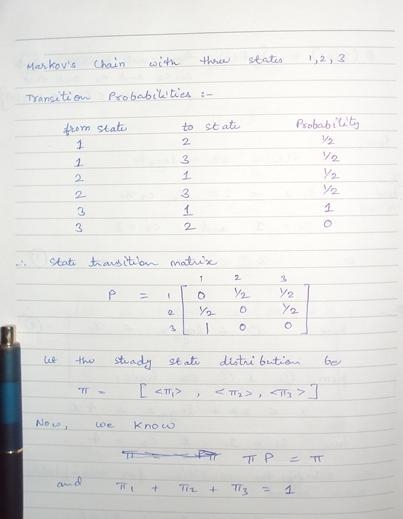 Markov's Chain with three states 1, 2, 3
Transition Probabilities :-
from state to state Probability
1 2 1/2
1 3 1/2
2 1 1/2
2 3 1/2
3 1 1
3 2 0
∴ State transition matrix
1 2 3
P = 1 [ 0 1/2 1/2
2 1/2 0 1/2
3 1 0 0 ]
let the steady state distribution be
π = [ <π₁> , <π₂> , <π₃> ]
Now, we know
π P = π
and π₁ + π₂ + π₃ = 1